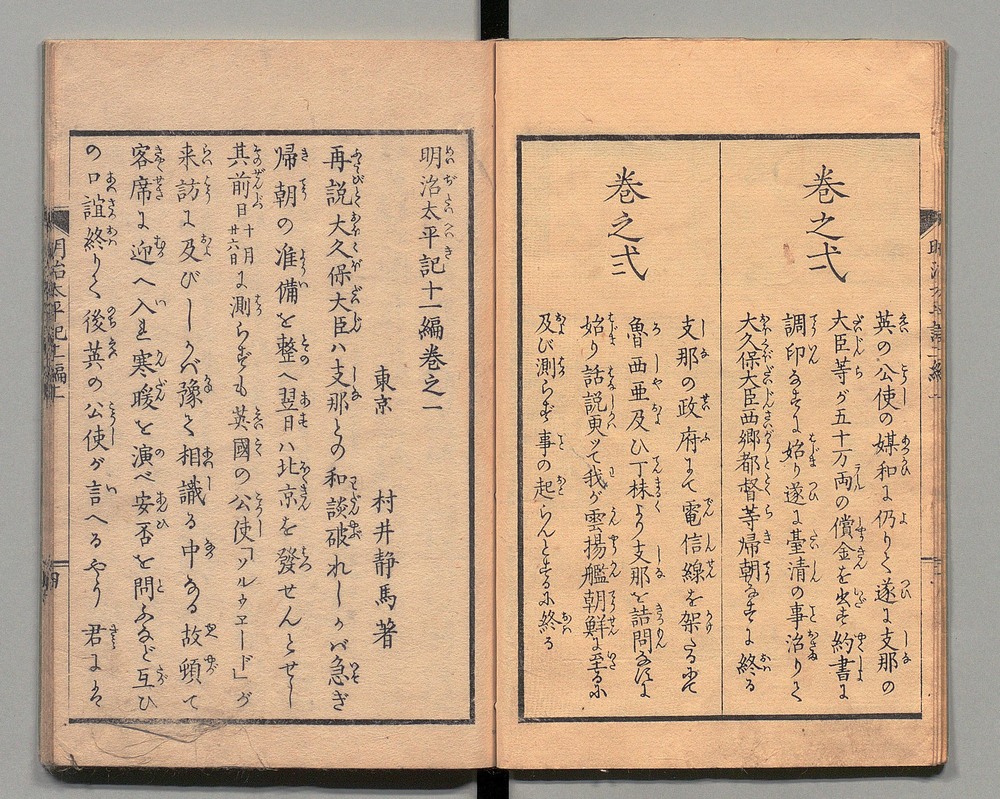 巻之弌
英の公使の媒和に仍りて遂に支那の
大臣等が五十万両の償金を出す約書に
調印なすに始り遂に臺清の事治りて
大久保大臣西郷都督等帰朝なすに終る
巻之弍
支那の政府にて電信線を架たるにて
魯西亜及ひ丁抹より支那を詰問なすに
始り話説更ッて我が雲揚艦朝鮮に至るに
及び測らず事の起らんとするに終る
明治太平記十一編巻之一
東京 村井静馬著
再説大久保大臣ハ支那との和談破れしかバ急ぎ
帰朝の准備を整へ翌日ハ北京を發せんとせし
其前日十月廿六日に測らずも英國の公使「ソルウエード」が
来訪に及びしかバ豫て相識る中なる故頓て
客席に迎へ入れ寒暖を演べ安否を問ふなど互ひ
の口誼終りて後英の公使が言へるやう君には
明治太平記十一編